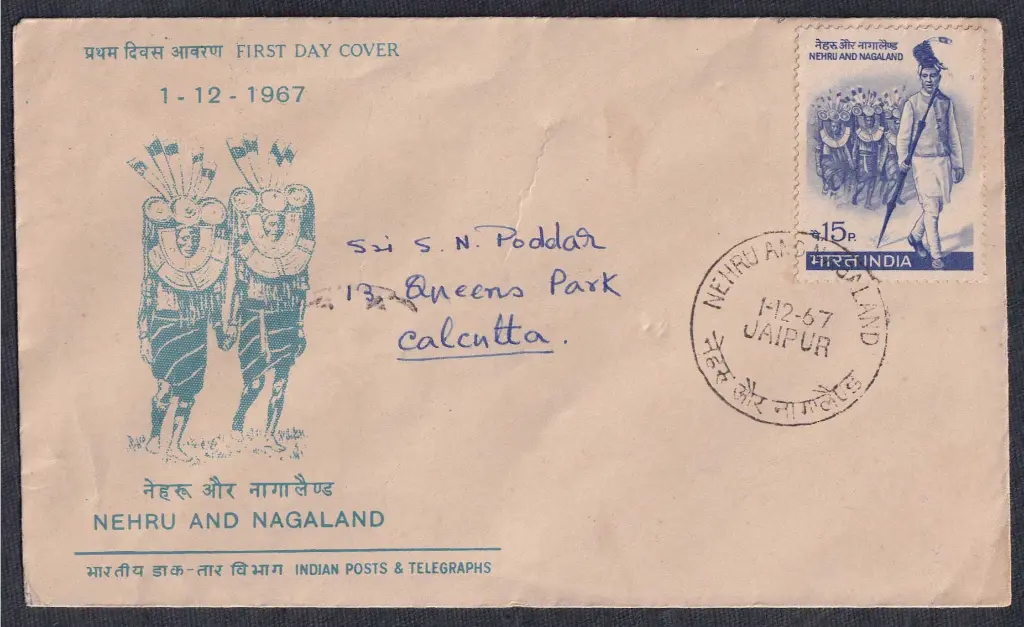 प्रथम दिवस आवरण FIRST DAY COVER
1-12-1967
नेहरू और नागालैण्ड
NEHRU AND NAGALAND
पै.15P.
भारत INDIA
Sri S. N. Poddar
13 Queens Park
Calcutta.
NEHRU AND NAGALAND
1-12-67
JAIPUR
नेहरू और नागालैण्ड
नेहरू और नागालैण्ड
NEHRU AND NAGALAND
भारतीय डाक-तार विभाग INDIAN POSTS & TELEGRAPHS